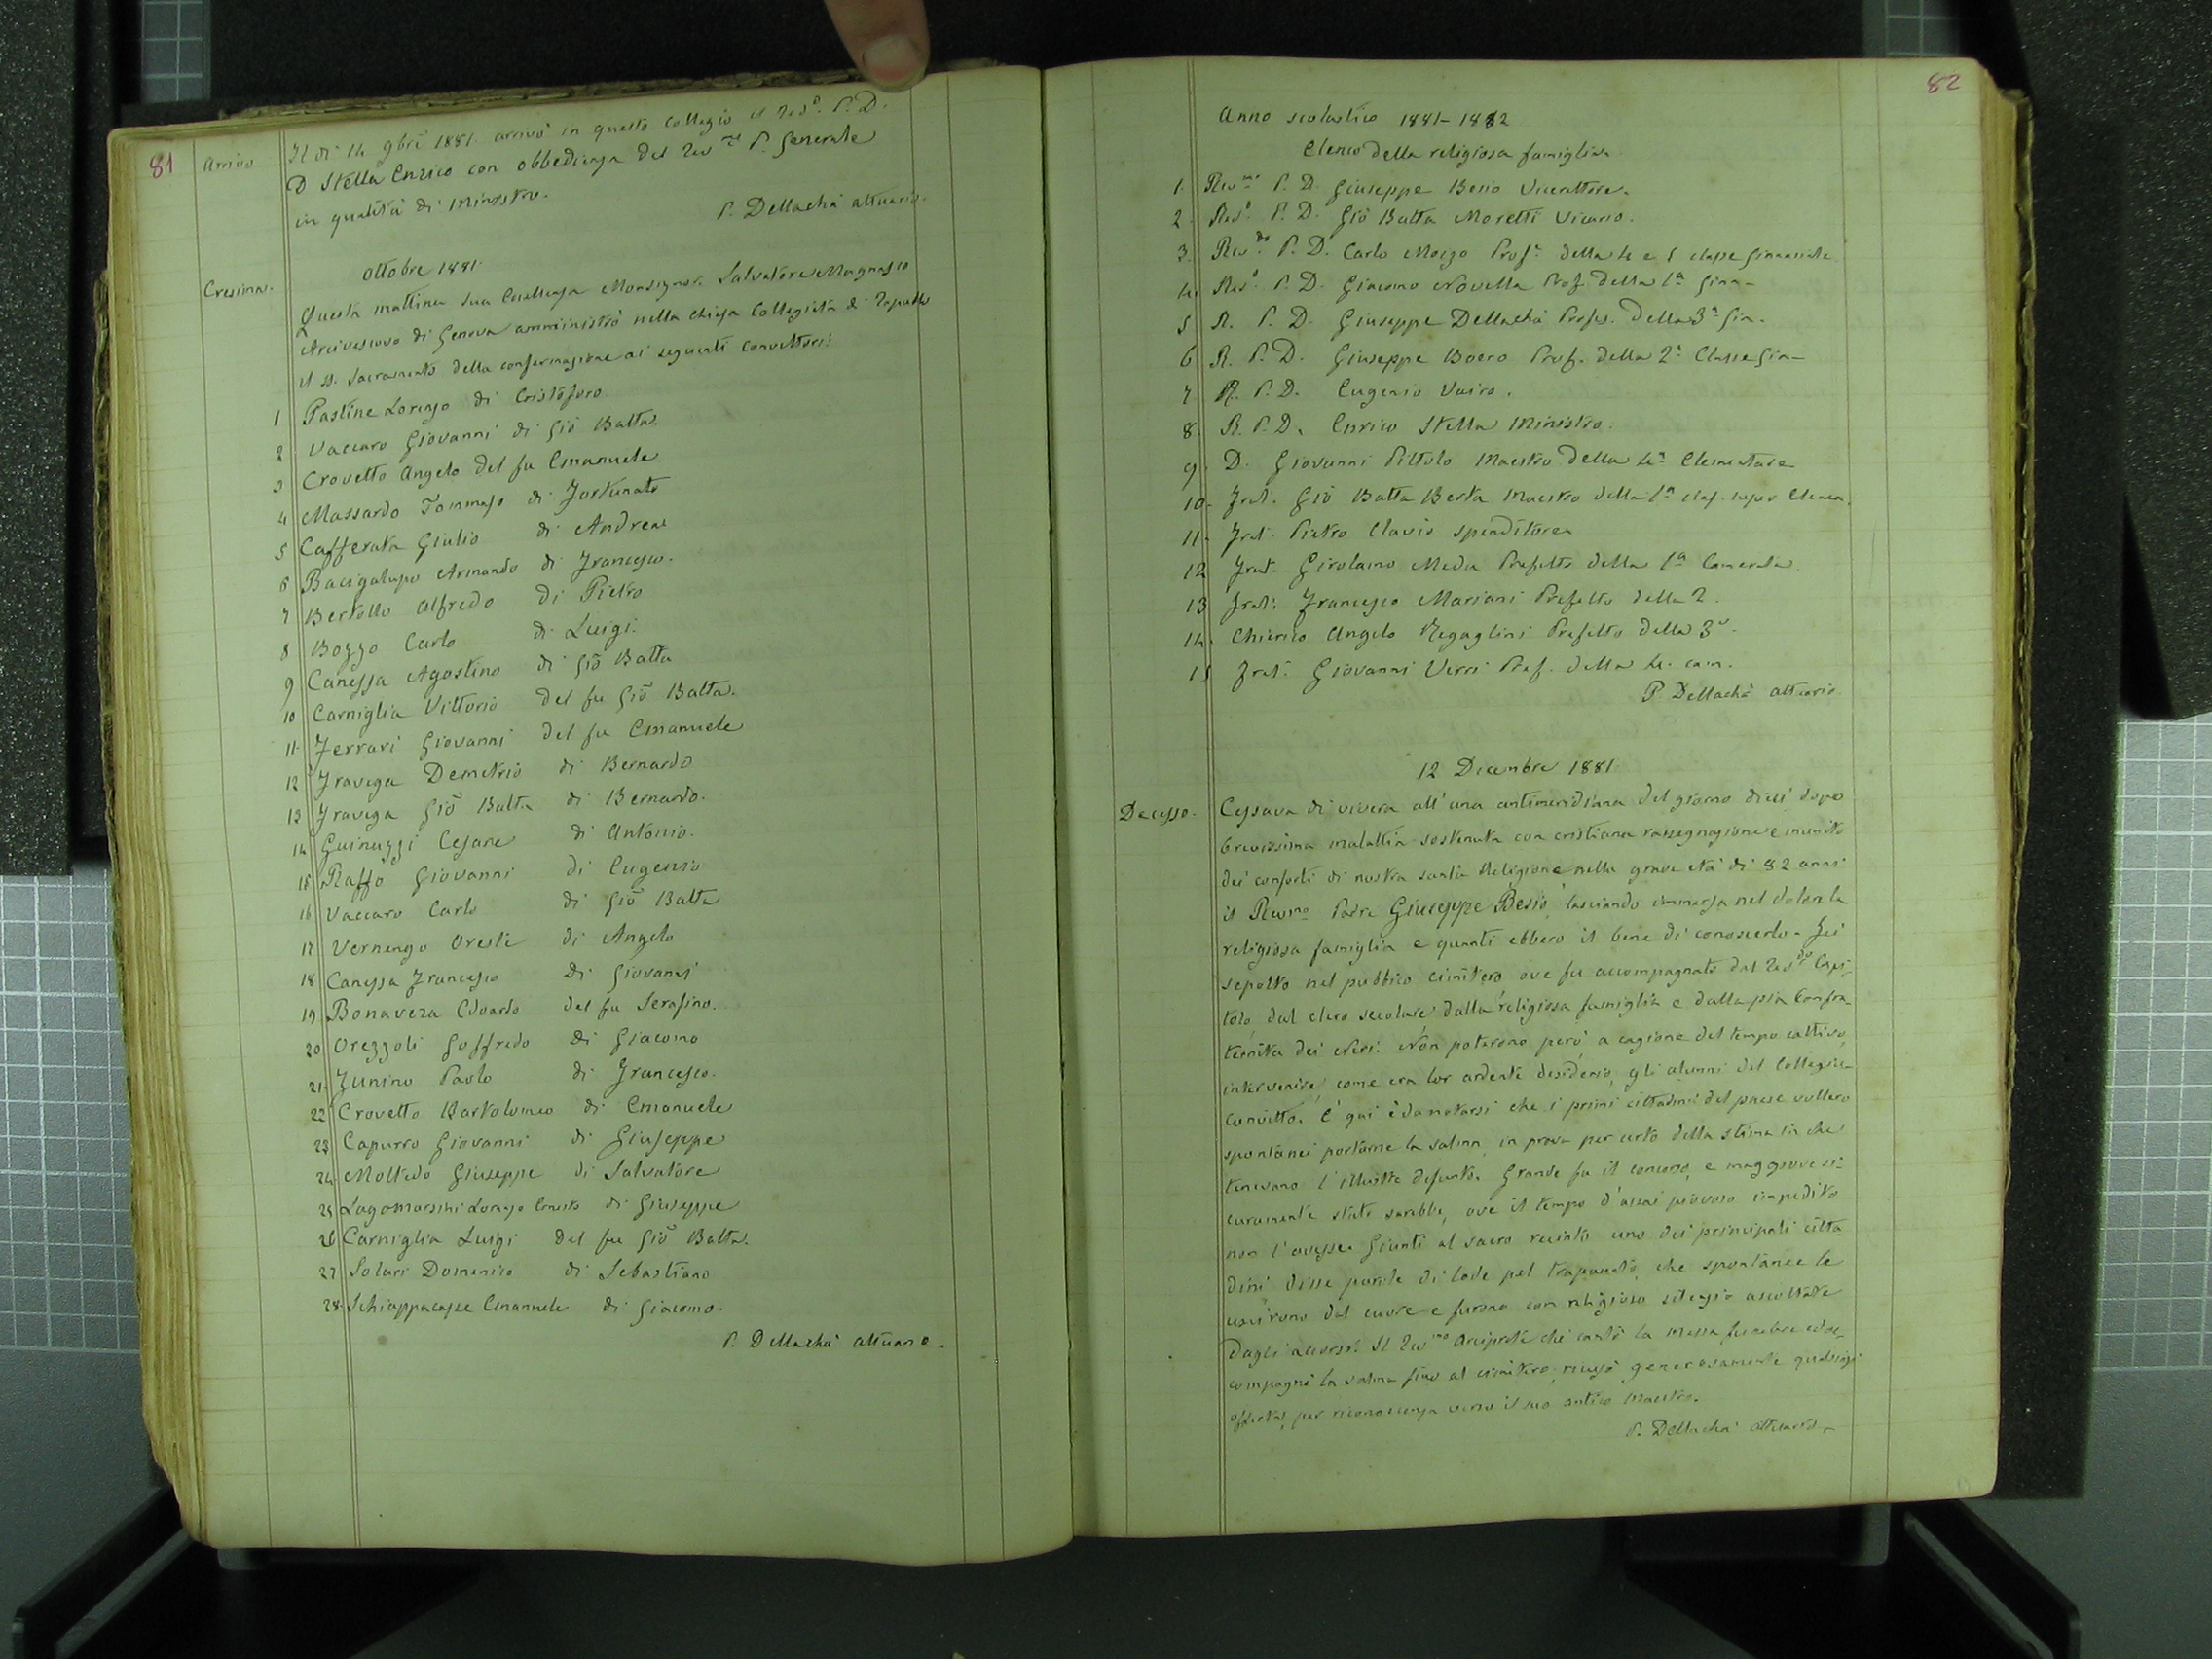 81
Arrivo
Il dì 14 9bre 1881. arrivò in questo collegio il Revo. P. D.
D Stella Enrico con obbedienza del Revmo P. Generale
in qualità di Ministro.
P. Dellachà attuario.
Ottobre 1881.
Cresima.
Questa mattina Sua Eccellenza Monsignor. Salvatore Magnasco
Arcivescovo di Genova amministrò nella chiesa Collegiata di Rapallo
il SS. Sacramento della confermazione ai seguenti convittori:
1 Pastine Lorenzo di Cristoforo
2 Vaccaro Giovanni di Gio Batta.
3 Crovetto Angelo del fu Emanuele
4 Massardo Tommaso di Fortunato
5 Cafferata Giulio di Andrea
6 Bacigalupo Armando di Francesco.
7 Bertollo Alfredo di Pietro
8 Bozzo Carlo di Luigi.
9 Canessa Agostino di Gio Batta
10 Carniglia Vittorio del fu Gio Batta.
11. Ferrari Giovanni del fu Emanuele
12 Fravega Demetrio di Bernardo
13 Fravega Gio Batta di Bernardo.
14 Guinuzzi Cesare di Antonio.
15 Raffo Giovanni di Eugenio
16 Vaccaro Carlo di Gio Batta
17 Vernengo Oreste di Angelo
18 Canessa Francesco di Giovanni
19. Bonavera Edoardo del fu Serafino.
20 Orezzoli Goffredo di Giacomo
21. Zunino Paolo di Francesco.
22 Crovetto Bartolomeo di Emanuele
23 Capurro Giovanni di Giuseppe
24 Moltedo Giuseppe di Salvatore
25 Lagomarsini Lorenzo Ernesto di Giuseppe
26 Carniglia Luigi del fu Gio Batta.
27 Solari Domenico di Sebastiano
28. Schiappacasse Emanuele di Giacomo.
P. Dellachà attuario.
82
Anno scolastico 1881-1882
Elenco della religiosa famiglia.
1. Revmo P. D. Giuseppe Besio Vicerettore.
2. Revo. P. D. Gio Batta Moretti Vicario.
3. Revdo P. D. Carlo Moizo Profe. della 4 e 5 classe ginnasiale
4. Revo. P. D. Giacomo Novella Prof. della 1a Ginn-
5 R. P. D. Giuseppe Dellachà Profes. della 3a Gin.
6 R. P. D. Giuseppe Boero Prof. della 2a Classe Gin-
7 R. P. D. Eugenio Vairo.
8. R. P. D. Enrico Stella Ministro.
9. D. Giovanni Pittolo Maestro della 4a Elementare
10. Frat. Gio Batta Berta Maestro della 1a clas. super Elemen.
11. Frat. Pietro Clavio spenditore
12 Frat. Girolamo Meda Prefetto della 1a Camerata
13 Frat. Francesco Mariani Prefetto della 2.
14. Chierico Angelo Regaglini Prefetto della 3a.
15 Frat. Giovanni Verri Pref. della 4. cam.
P Dellachà attuario
12 Dicembre 1881.
Decesso.
Cessava di vivere all'una antimeridiana del giorno dieci dopo
brevissima malattia sostenuta con cristiana rassegnazione e munito
dei conforti di nostra santa Religione nella grave età di 82 anni
il Revmo Padre Giuseppe Besio, lasciando immersa nel dolore la
religiosa famiglia e quanti ebbero il bene di conoscerlo. Fu
sepolto nel pubblico cimitero ove fu accompagnato dal Revdo Capi-
tolo, dal clero secolare dalla religiosa famiglia e dalla pia Confra-
ternita dei Neri. Non poterono però a cagione del tempo cattivo,
intervenire, come era lor ardente desiderio, gli alunni del Collegio-
convitto. E qui è da notarsi che i primi cittadini del paese vollero
spontanei portarne la salma, in prova per certo della stima in che
tenevano l'illustre defunto. Grande fu il concorso, e maggiore si-
curamente stato sarebbe, ove il tempo d'assai piovoso impedito
non l'avesse. Giunti al sacro recinto uno dei principali citta-
dini disse parole di lode pel trapassato, che spontanee le
uscirono dal cuore e furono con religioso silenzio ascoltate
dagli accorsi. Il Revmo Arciprete che cantò la messa funebre ed ac-
compagnò la salma fino al cimitero, ricusò generosamente qualsiasi
offerta, per riconoscenza verso il suo antico Maestro.
P. Dellachà attuario.